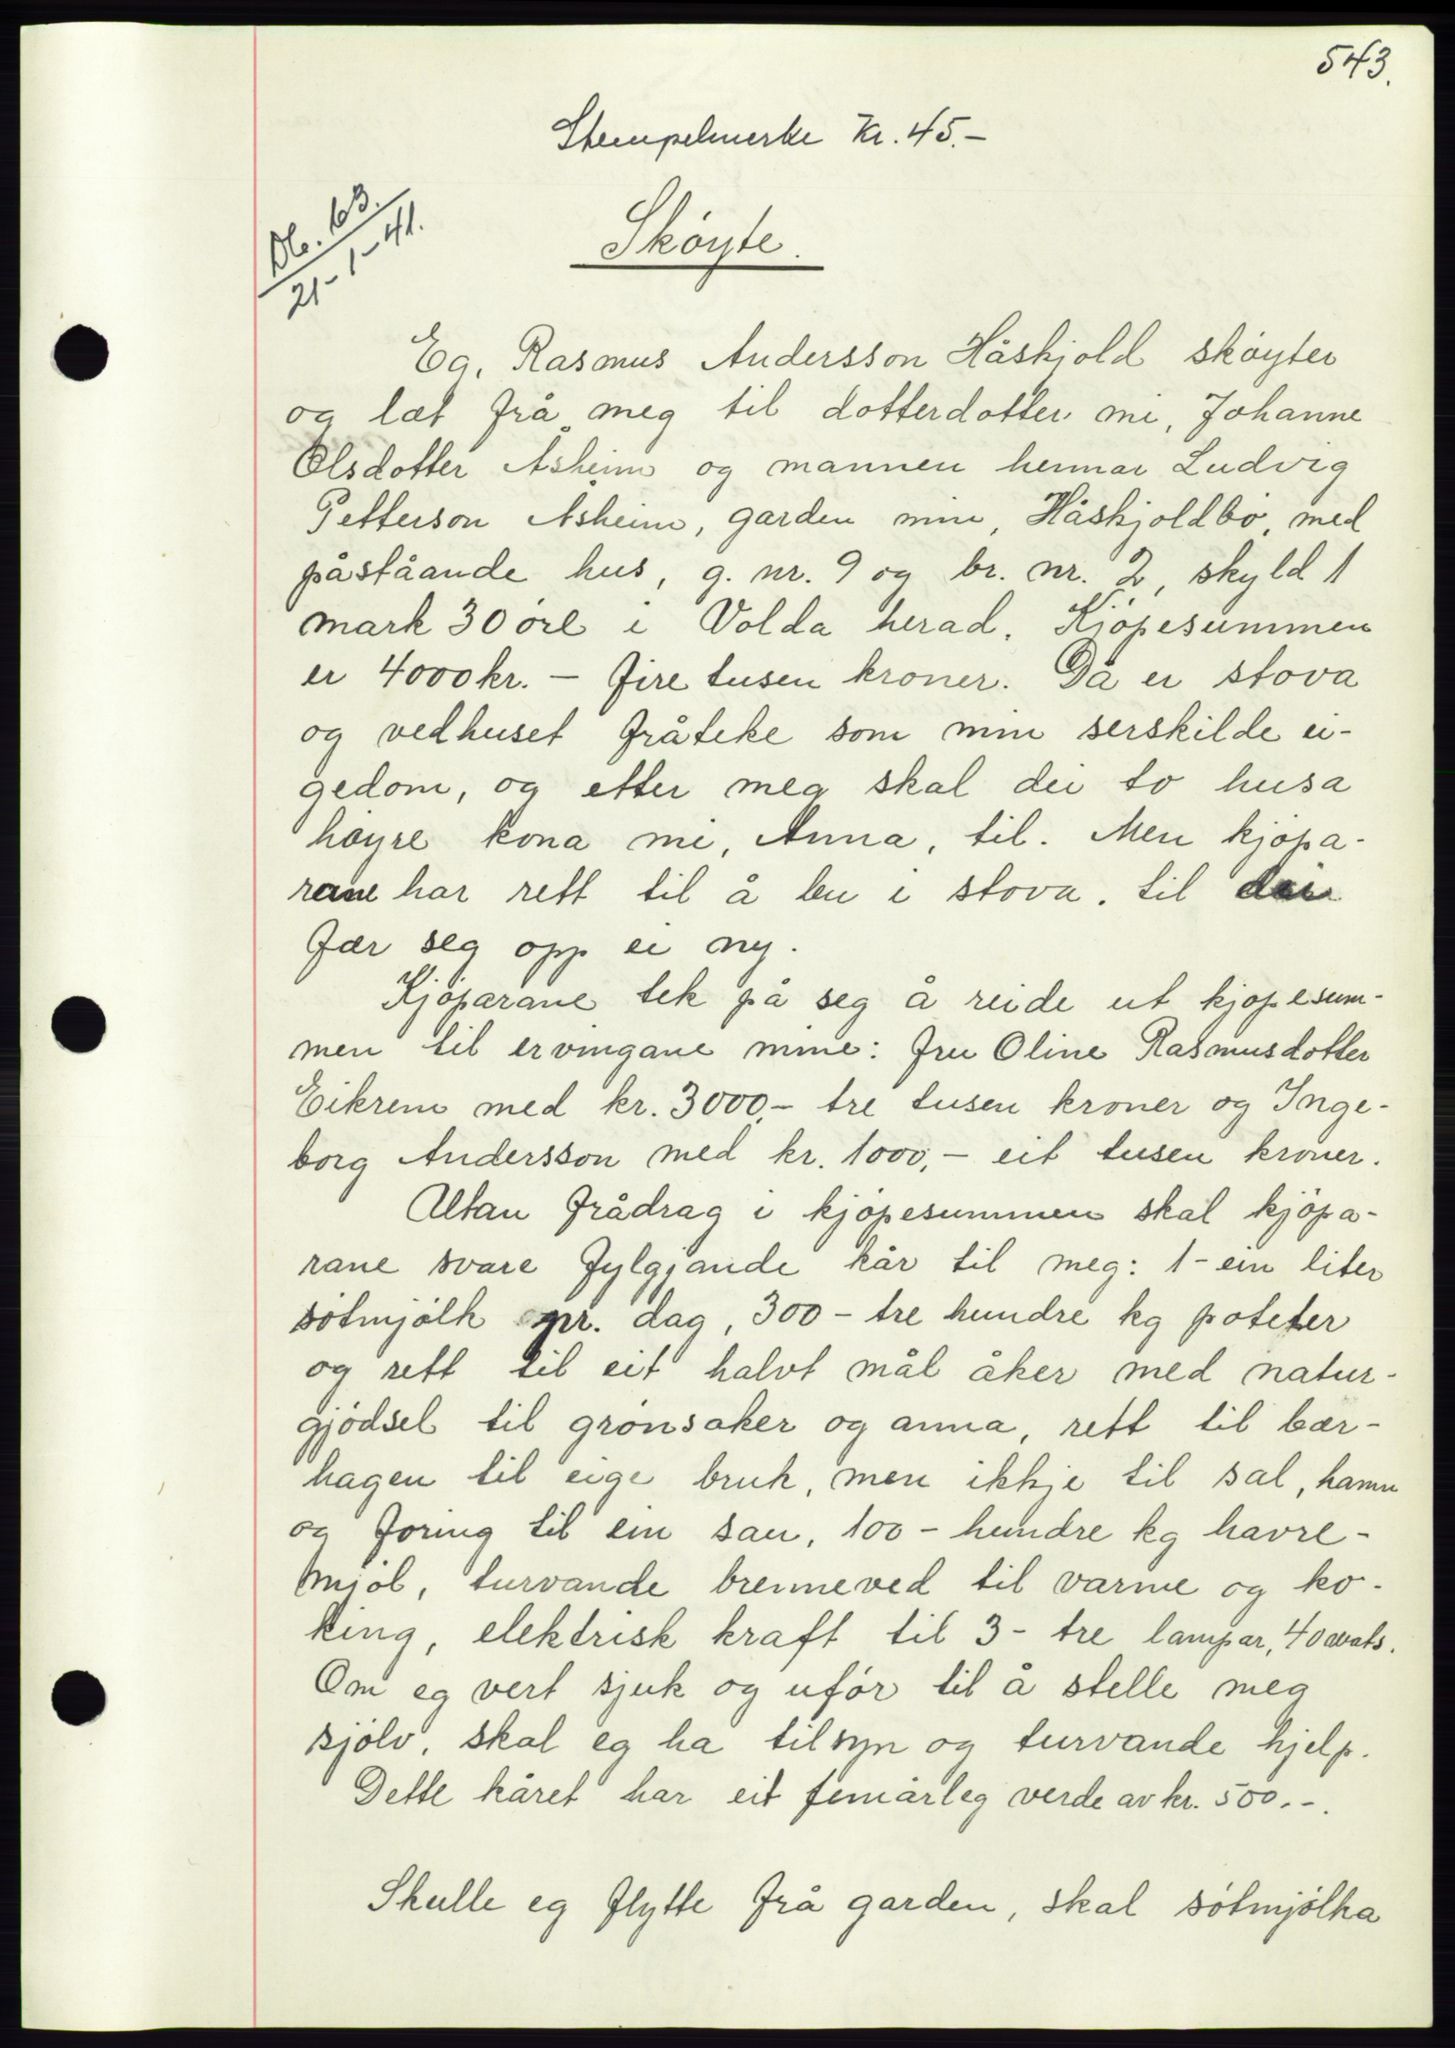 543.
Stempelmerke Kr. 45.-
Db. 63.
21-1-41.
Skøyte.
Eg, Rasmus Andersson Håskjold skøyter
og læt frå meg til dotterdotter mi, Johanne
Olsdotter Åsheim og mannen hennar Ludvig
Petterson Åsheim, garden min, Håskjoldbø, med
påståande hus, g. nr. 9 og br. nr. 2, skyld 1
mark 30 øre i Volda herad. Kjøpesummen
er 4000 kr. - fire tusen kroner. Då er stova
og vedhuset fråteke som min serskilde ei-
gedom, og etter meg skal dei to husa
høyre kona mi, Anna, til. Men kjøpa-
rane har rett til å bu i stova, til dei
fær seg opp ei ny.
Kjøparane tek på seg å reide ut kjøpesum-
men til ervingane mine: fru Oline Rasmusdotter
Eikrem med kr. 3000,- tre tusen kroner og Inge-
borg Andersson med kr. 1000,- eit tusen kroner.
Utan frådrag i kjøpesummen skal kjøpa-
rane svare fylgjande kår til meg: 1 - ein liter
søtmjølk pr. dag, 300 - tre hundre kg poteter
og rett til eit halvt mål åker med natur-
gjødsel til grønsaker og anna, rett til bær-
hagen til eige bruk, men ikkje til sal, hamn
og foring til ein sau, 100 - hundre kg havre-
mjøl, turvande brenneved til varme og ko-
king, elektrisk kraft til 3 - tre lampar, 40 wats.
Om eg vert sjuk og ufør til å stelle meg
sjølv, skal eg ha tilsyn og turvande hjelp.
Dette kåret har eit femårleg verde av kr. 500.-.
Skulle eg flytte frå garden, skal søtmjølka